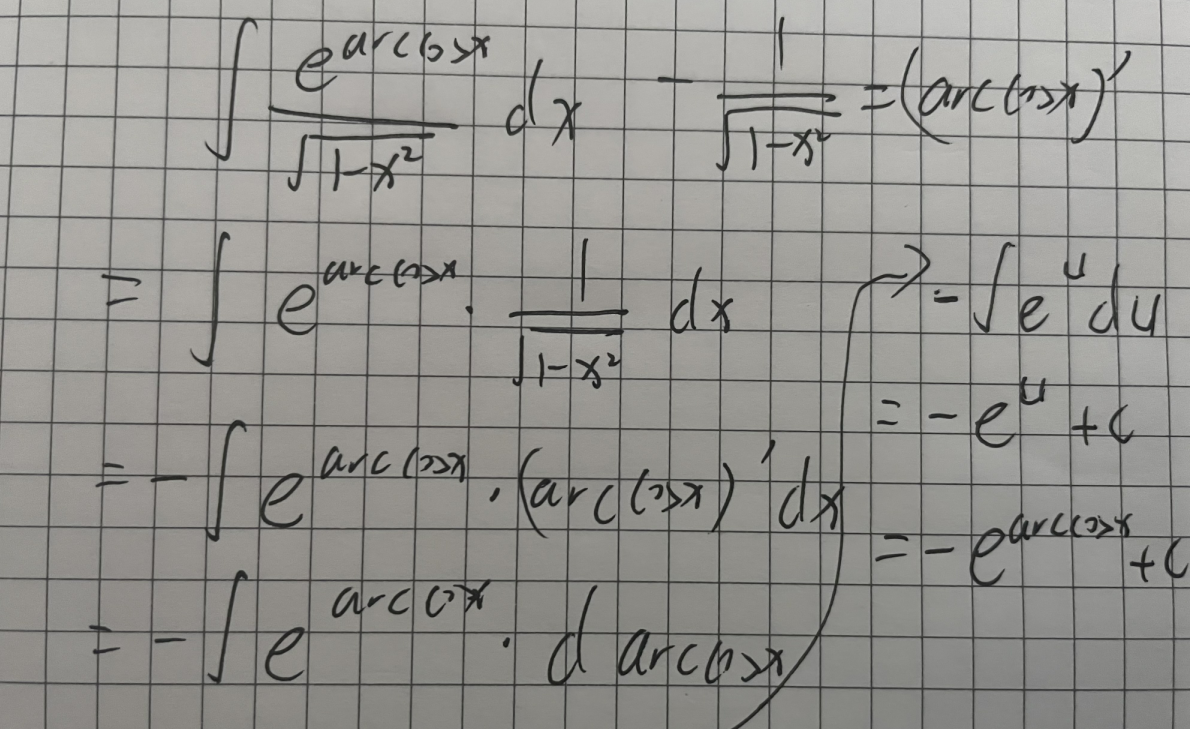 ∫ e^{arccosx} / √(1-x²) dx   - 1/√(1-x²) = (arccosx)'
= ∫ e^{arccosx} · 1/√(1-x²) dx
= - ∫ e^{arccosx} · (arccosx)' dx
= - ∫ e^{arccosx} · d arccosx
→ - ∫ e^u du
= - e^u + c
= - e^{arccosx} + c